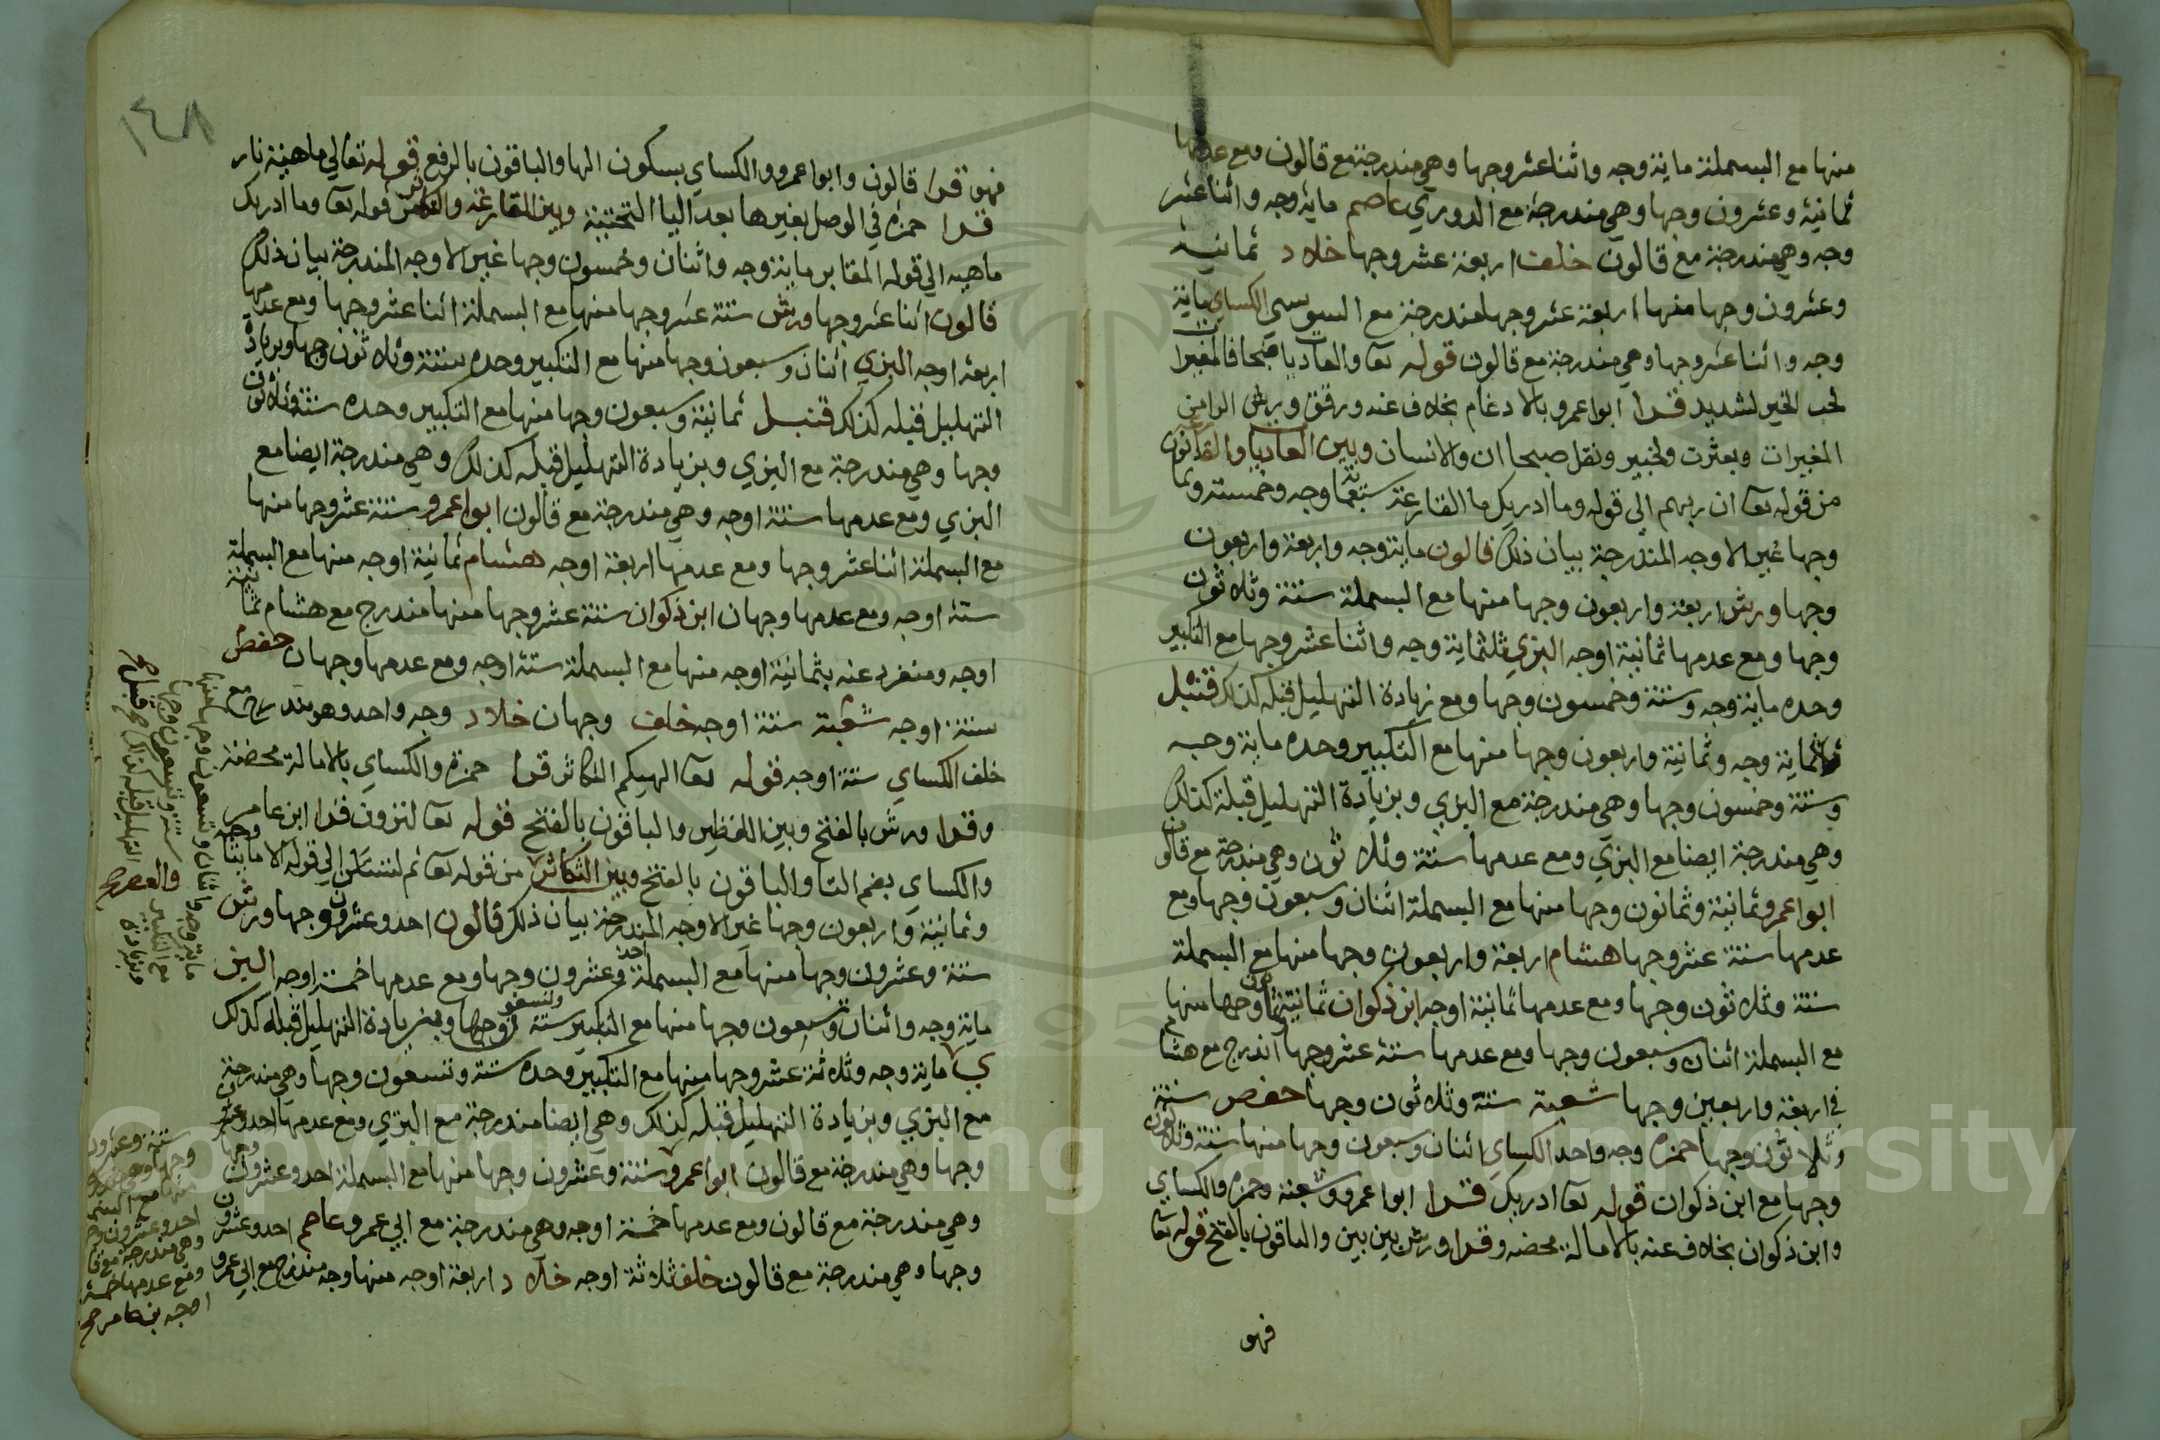 منها مع البسملة ماية وجه واثنا عشر وجها وهي مندرجة مع قالون ومع عدمها
ثمانية وعشرون وجها وهي مندرجة مع الدوري عاصم ماية وجه واثنا عشر
وجه وهي مندرجة مع قالون خلف اربعة عشر وجها خلاد ثمانية
وعشرون وجها منها اربعة عشر وجها مندرجة مع السوسي الكساي ماية
وجه واثنا عشر وجها وهي مندرجة مع قالون قوله تعا والعاديات ضبحا فالمغيرات
لحب الخير لشديد قرا ابوا عمرو بالادغام بخلاف عنه ورقق ورش الرا من
المغيرات وبعثرت ولخبير ونقل صبحا ان والانسان وبين العاديا والقارعة
من قوله تعا ان ربهم الى قوله وما ادريك ما القارعة سبعماية وجه وخمسة وثمانون
وجها غير الاوجه المندرجة بيان ذلك قالون ماية وجه واربعة واربعون
وجها ورش اربعة واربعون وجها منها مع البسملة ستة وثلاثون
وجها ومع عدمها ثمانية اوجه البزي ثلثماية وجه واثنا عشر وجها مع التكبير
وحده ماية وجه وستة وخمسون وجها ومع زيادة التهليل قبله كذلك قنبل
ثلثماية وجه وثمانية واربعون وجها منها مع التكبير وحده ماية وجه
وستة وخمسون وجها وهي مندرجة مع البزي وبزيادة التهليل قبله كذلك
وهي مندرجة ايضا مع البزي ومع عدمها ستة وثلاثون وهي مندرجة مع قالون
ابوا عمرو ثمانية وثمانون وجها منها مع البسملة اثنان وسبعون وجها ومع
عدمها ستة عشر وجها هشام اربعة واربعون وجها منها مع البسملة
ستة وثلاثون وجها ومع عدمها ثمانية اوجه ابن ذكوان ثمانية وثمانون وجها منها
مع البسملة اثنان وسبعون وجها ومع عدمها ستة عشر وجها اندرج مع هشام
في اربعة واربعين وجها شعبة ستة وثلاثون وجها حفص ستة
وثلاثون وجها حمزه وجه واحد الكساي اثنان وسبعون وجها منها ستة وثلاثون
وجها مع ابن ذكوان قوله تعا ادريك قرا ابوا عمرو وشعبة وحمزه والكساي
وابن ذكوان بخلاف عنه بالامالة محضه وقرا ورش بين بين والباقون بالفتح قوله تعا
فهو
١٤٨
فهو قرا قالون وابوا عمرو والكساي بسكون الها والباقون بالرفع قوله تعالي ماهية نار
قرا حمزه في الوصل بغيرها بعد اليا التحتية وبين القارعة والتكاثر من قوله تعا وما ادريك
ماهيه الي قوله المقابر ماية وجه واثنان وخمسون وجها غير الاوجه المندرجة بيان ذلك
قالون اثنا عشر وجها ورش ستة عشر وجها منها مع البسملة اثنا عشر وجها ومع عدمها
اربعة اوجه البزي اثنان وسبعون وجها منها مع التكبير وحده ستة وثلاثون وجها وبزيادة
التهليل قبله كذلك قنبل ثمانية وسبعون وجها منها مع التكبير وحده ستة وثلاثون
وجها وهي مندرجة مع البزي وبزيادة التهليل قبله كذلك وهي مندرجة ايضا مع
البزي ومع عدمها ستة اوجه وهي مندرجة مع قالون ابوا عمرو ستة عشر وجها منها
مع البسملة اثنا عشر وجها ومع عدمها اربعة اوجه هشام ثمانية اوجه منها مع البسملة
ستة اوجه ومع عدمها وجهان ابن ذكوان ستة عشر وجها منها مندرج مع هشام ثمانية
اوجه ومنفرد عنه بثمانية اوجه منها مع البسملة ستة اوجه ومع عدمها وجهان حفص
ستة اوجه شعبة ستة اوجه خلف وجهان خلاد وجه واحد وهو مندرج مع
خلف الكساي ستة اوجه قوله تعا الهيكم التكاثر قرا حمزه والكساي بالامالة محضة
وقرا ورش بالفتح وبين اللفظين والباقون بالفتح قوله تعا لترون قرا ابن عامر
والكساي بضم التا والباقون بالفتح وبين التكاثر والعصر من قوله تعا ثم لتسئلن الي قوله الا مايتا وجه
وثمانية واربعون وجها غير الاوجه المندرجة بيان ذلك قالون احد وعشرون وجها ورش
ستة وعشرون وجها منها مع البسملة احد وعشرون وجها ومع عدمها خمسة اوجه البزي
ماية وجه واثنان وتسعون وجها منها مع التكبير ستة وتسعون وجها وبزيادة التهليل قبله كذلك
ماية وجه وثلاثة عشر وجها منها مع التكبير وحده ستة وتسعون وجها وهي مندرجة
مع البزي وبزيادة التهليل قبله كذلك وهي ايضا مندرجة مع البزي ومع عدمها احد وعشرون
وجها وهي مندرجة مع قالون ابوا عمرو ستة وعشرون وجها منها مع البسملة احد وعشرون وجها
وهي مندرجة مع قالون ومع عدمها خمسة اوجه وهي مندرجة مع ابي عمرو عاصم احد وعشرون
وجها وهي مندرجة مع قالون خلف ثلاثة اوجه خلاد اربعة اوجه منها وجه مندرج مع ابي عمرو
ماية وجه واثنان وتسعون وجها منها
مع التكبير ستة وتسعون وجها
وبزيادة التهليل قبله كذلك صح قنبل صح
والعصر صح
ستة وعشرون
وجها وهي مندرجة
منها مع البسملة
احد وعشرون وجها
وهي مندرجة مع قا
ومع عدمها خمسة
اوجه بن عامر صح
Copyright © King Saud University
1957